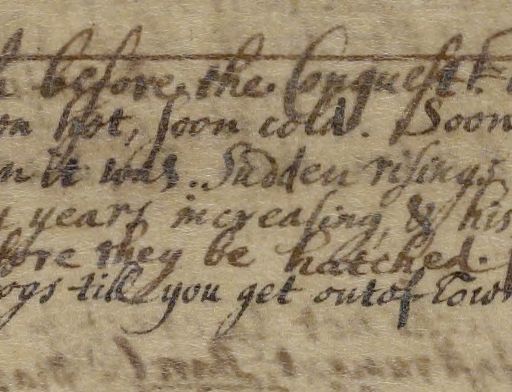 before the Conquest
hot, soon cold. Soon
it was. Sudden risings
years increasing, & his
they be hatched.
till you get out of Town